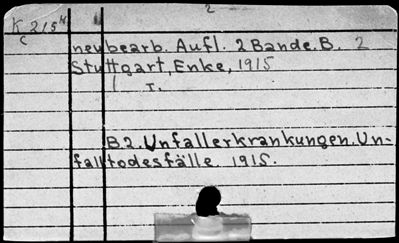 2
K 215 4
c
neubearb. Aufl. 2 Bände. B. 2
Stuttgart, Enke, 1915
I.
B. 2. Unfallerkrankungen. Un-
falltodesfälle. 1915.